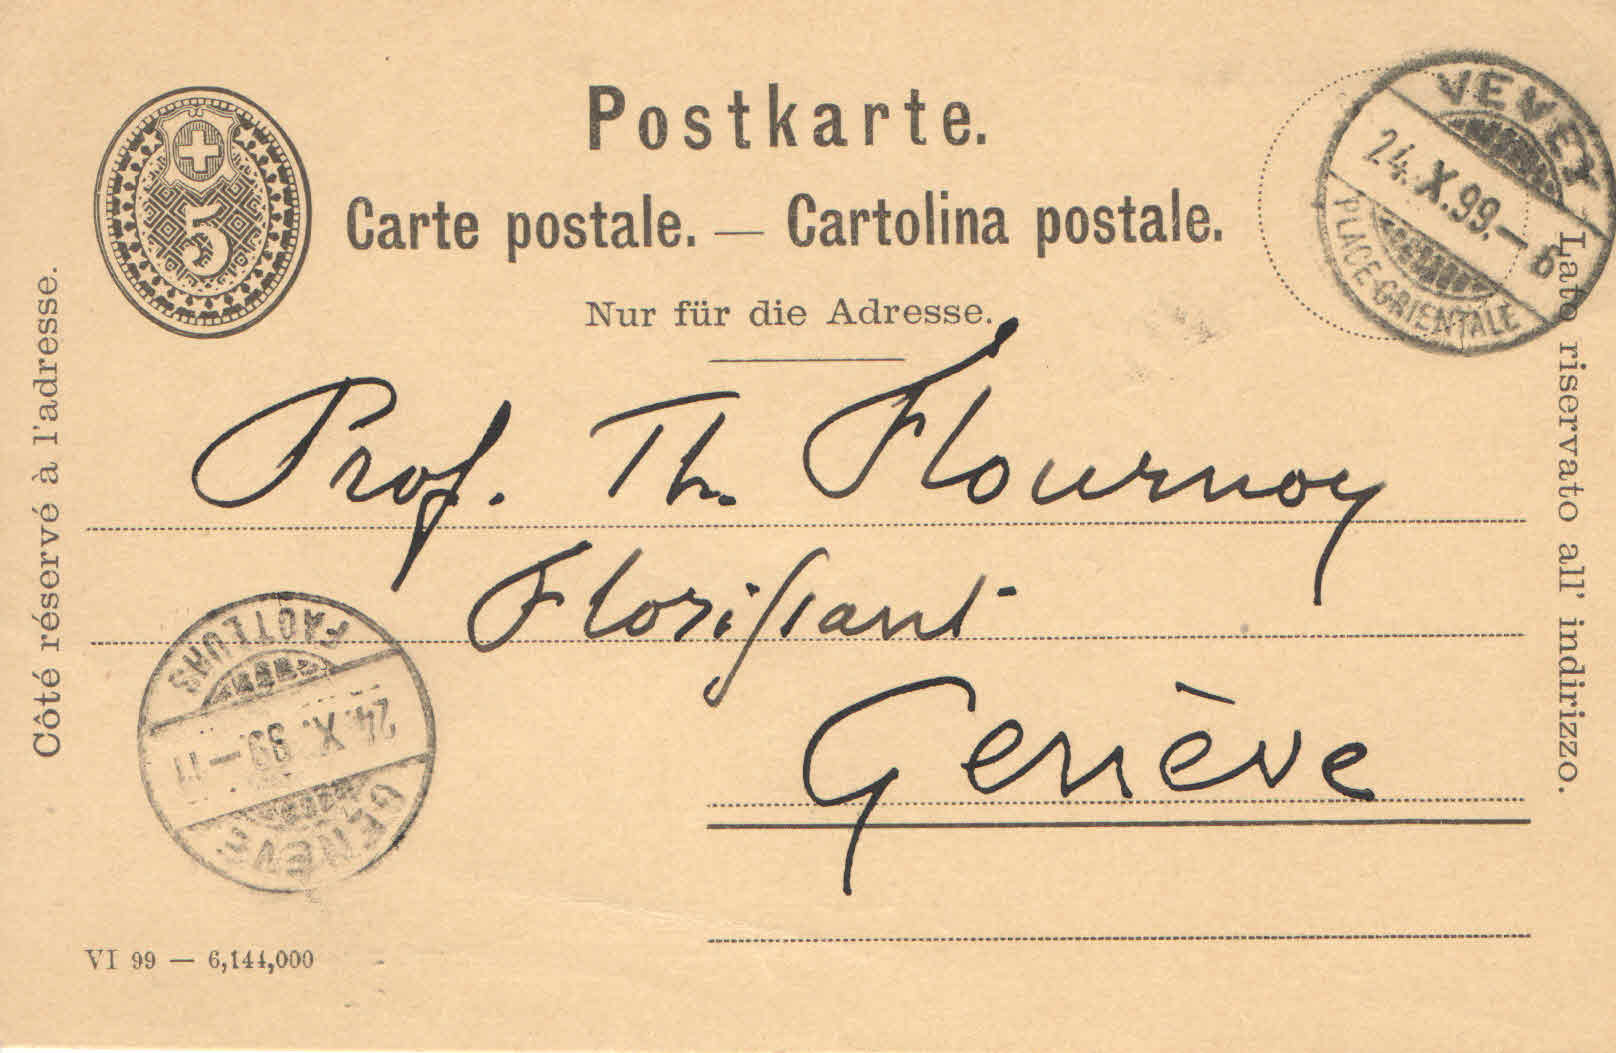 Postkarte.
5
Carte postale. — Cartolina postale.
Nur für die Adresse.
VEVEY
24.X.99.–6
PLACE-ORIENTALE
Côté réservé à l'adresse.
Lato riservato all' indirizzo.
Prof. Th. Flournoy
Florissant
Genève
GENÈVE
24.X.99–11
FACTEURS
VI 99 — 6,144,000